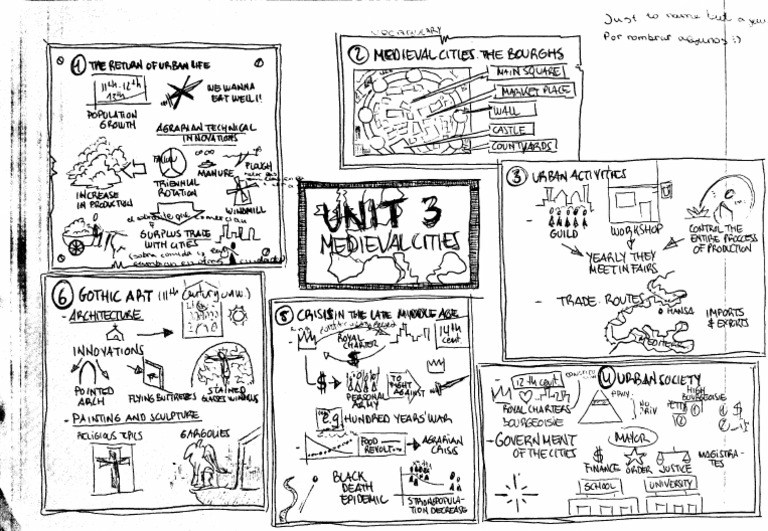 Just to name but a
Por nombrar algunos :)
VOCABULARY
UNIT 3
MEDIEVAL CITIES
1 THE RETURN OF URBAN LIFE
11th - 12th
13th
POPULATION
GROWTH
WE WANNA
EAT WELL!!
AGRARIAN TECHNICAL
INNOVATIONS
INCREASE
IN PRODUCTION
TRIENNIAL
ROTATION
MANURE
PLOUGH
WINDMILL
SURPLUS TRADE
WITH CITIES
2 MEDIEVAL CITIES. THE BOURGHS
MAIN SQUARE
MARKET PLACE
WALL
CASTLE
COURTYARDS
3 URBAN ACTIVITIES
GUILD
WORKSHOP
CONTROL THE
ENTIRE PROCESS
OF PRODUCTION
YEARLY THEY
MEET IN FAIRS
- TRADE ROUTES
HANSA
IMPORTS
& EXPORTS
4 URBAN SOCIETY
12th cent
ROYAL CHARTERS
BOURGEOISIE
PRIV
NO
PRIV
HIGH
BOURGEOISIE
- GOVERNMENT
OF THE CITIES
MAYOR
FINANCE
ORDER
JUSTICE
MAGISTRA-
TES
SCHOOL
UNIVERSITY
5 CRISIS IN THE LATE MIDDLE AGE
ROYAL
CHARTER
14th
cent.
PERSONAL
ARMY
TO
FIGHT
AGAINST
e.g. HUNDRED YEARS' WAR
FOOD
REVOLT
AGRARIAN
CRISIS
BLACK
DEATH
EPIDEMIC
STRONG POPULA-
TION DECREASE
6 GOTHIC ART (11th century onw.)
ARCHITECTURE
INNOVATIONS
POINTED
ARCH
FLYING BUTTRESSES
STAINED
GLASSES WINDOWS
- PAINTING AND SCULPTURE
RELIGIOUS TOPICS
GARGOLIES